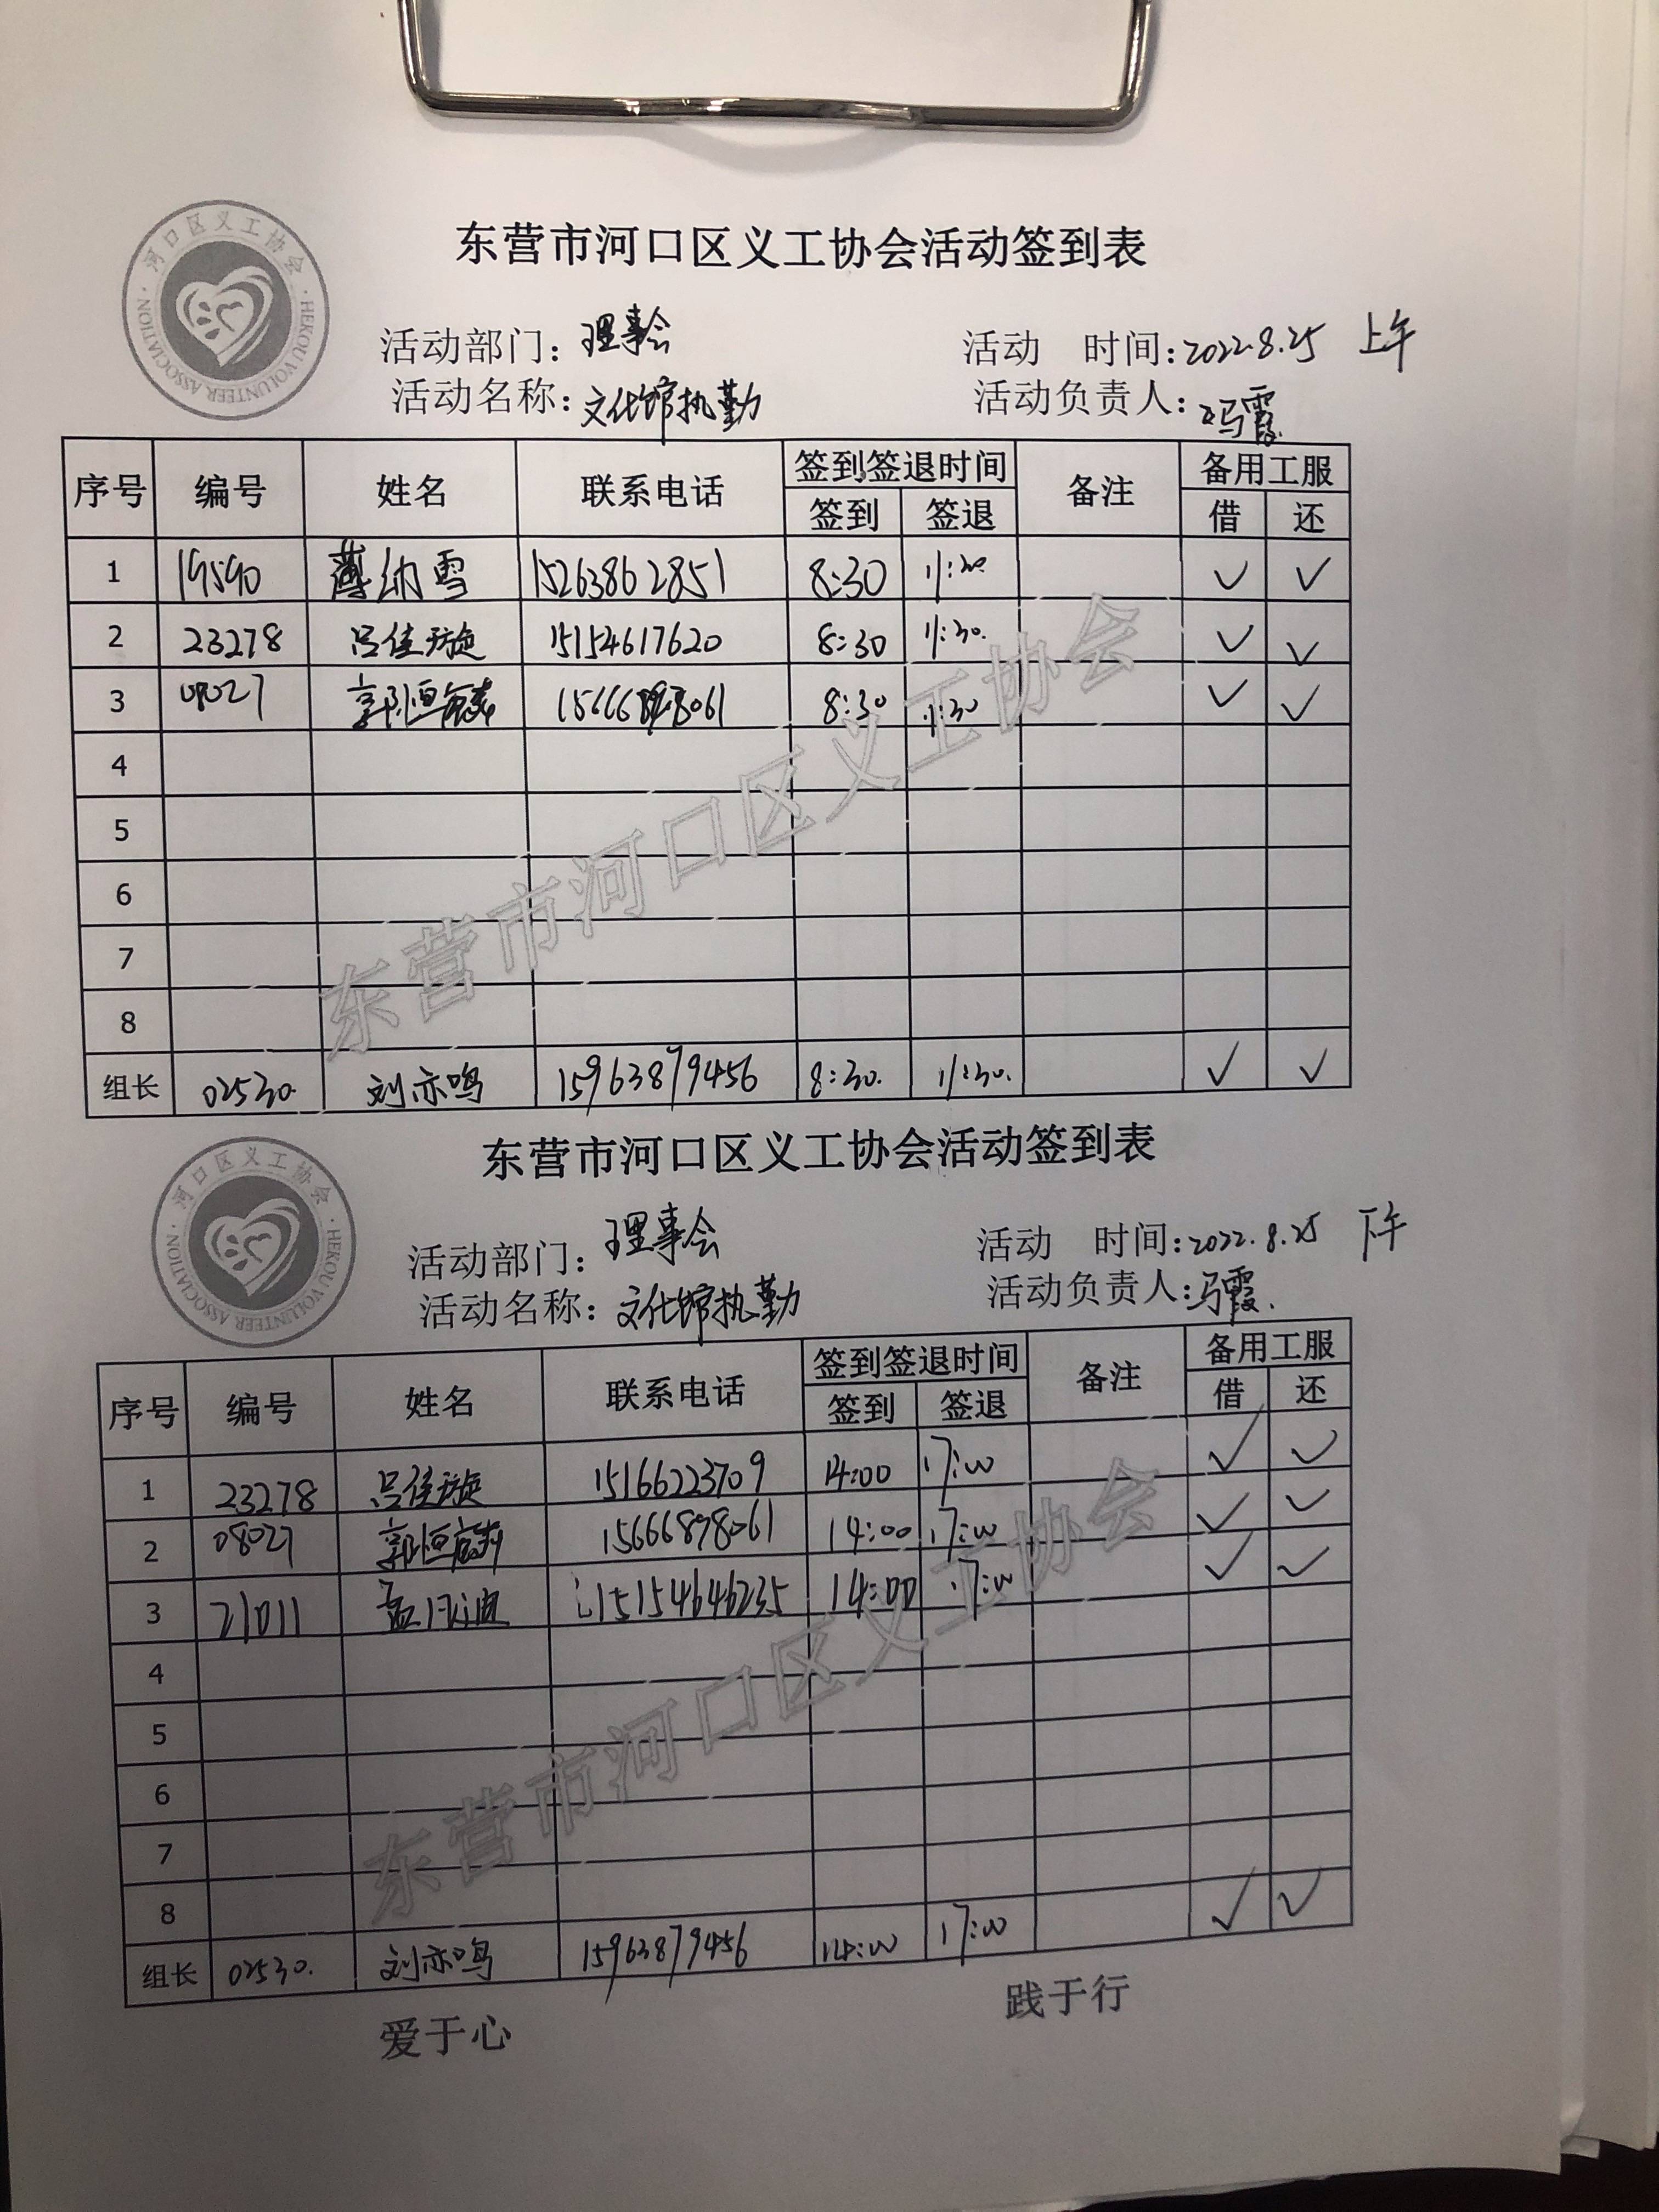 河口区义工协会
HEKOU VOLUNTEER ASSOCIATION
东营市河口区义工协会活动签到表
活动部门：理事会 活动 时间：2022.8.25 上午
活动名称：文化馆执勤 活动负责人：冯霞
序号 编号 姓名 联系电话 签到签退时间 备注 备用工服
签到 签退 借 还
1 19590 薄纳雪 15263862851 8:30 11:30 ✓ ✓
2 23278 吕佳璇 15154617620 8:30 11:30. ✓ ✓
3 08027 郭恒 8:30 11:30 ✓ ✓
4
5
6
7
8
组长 02530. 刘亦鸣 15963879456 8:30. 11:30. ✓ ✓
东营市河口区义工协会
河口区义工协会
HEKOU VOLUNTEER ASSOCIATION
东营市河口区义工协会活动签到表
活动部门：理事会 活动 时间：2022.8.25 下午
活动名称：文化馆执勤 活动负责人：冯霞.
序号 编号 姓名 联系电话 签到签退时间 备注 备用工服
签到 签退 借 还
1 23278 吕佳璇 15166223709 14:00 17:00 ✓ ✓
2 08027 郭恒 15666898061 14:00 17:00 ✓ ✓
3 21011 孟 15154646235 14:00 17:00 ✓ ✓
4
5
6
7
8
组长 02530. 刘亦鸣 15963879456 14:00 17:00 ✓ ✓
东营市河口区义工协会
爱于心 践于行